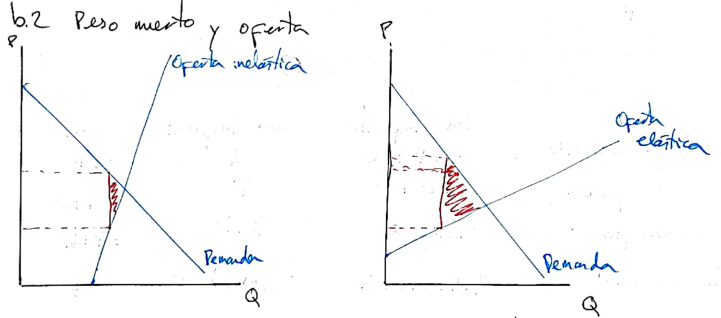 b.2 Peso muerto y oferta
P
Oferta inelástica
Demanda
Q
P
Oferta
elástica
Demanda
Q